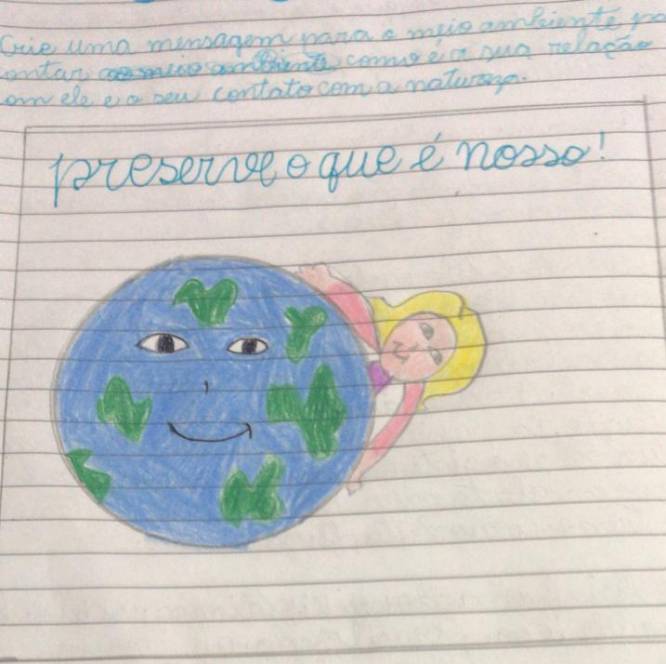 Crie uma mensagem para o meio ambiente pa
ontar como é a sua relação
om ele e o seu contato com a natureza.
preserve o que é nosso!